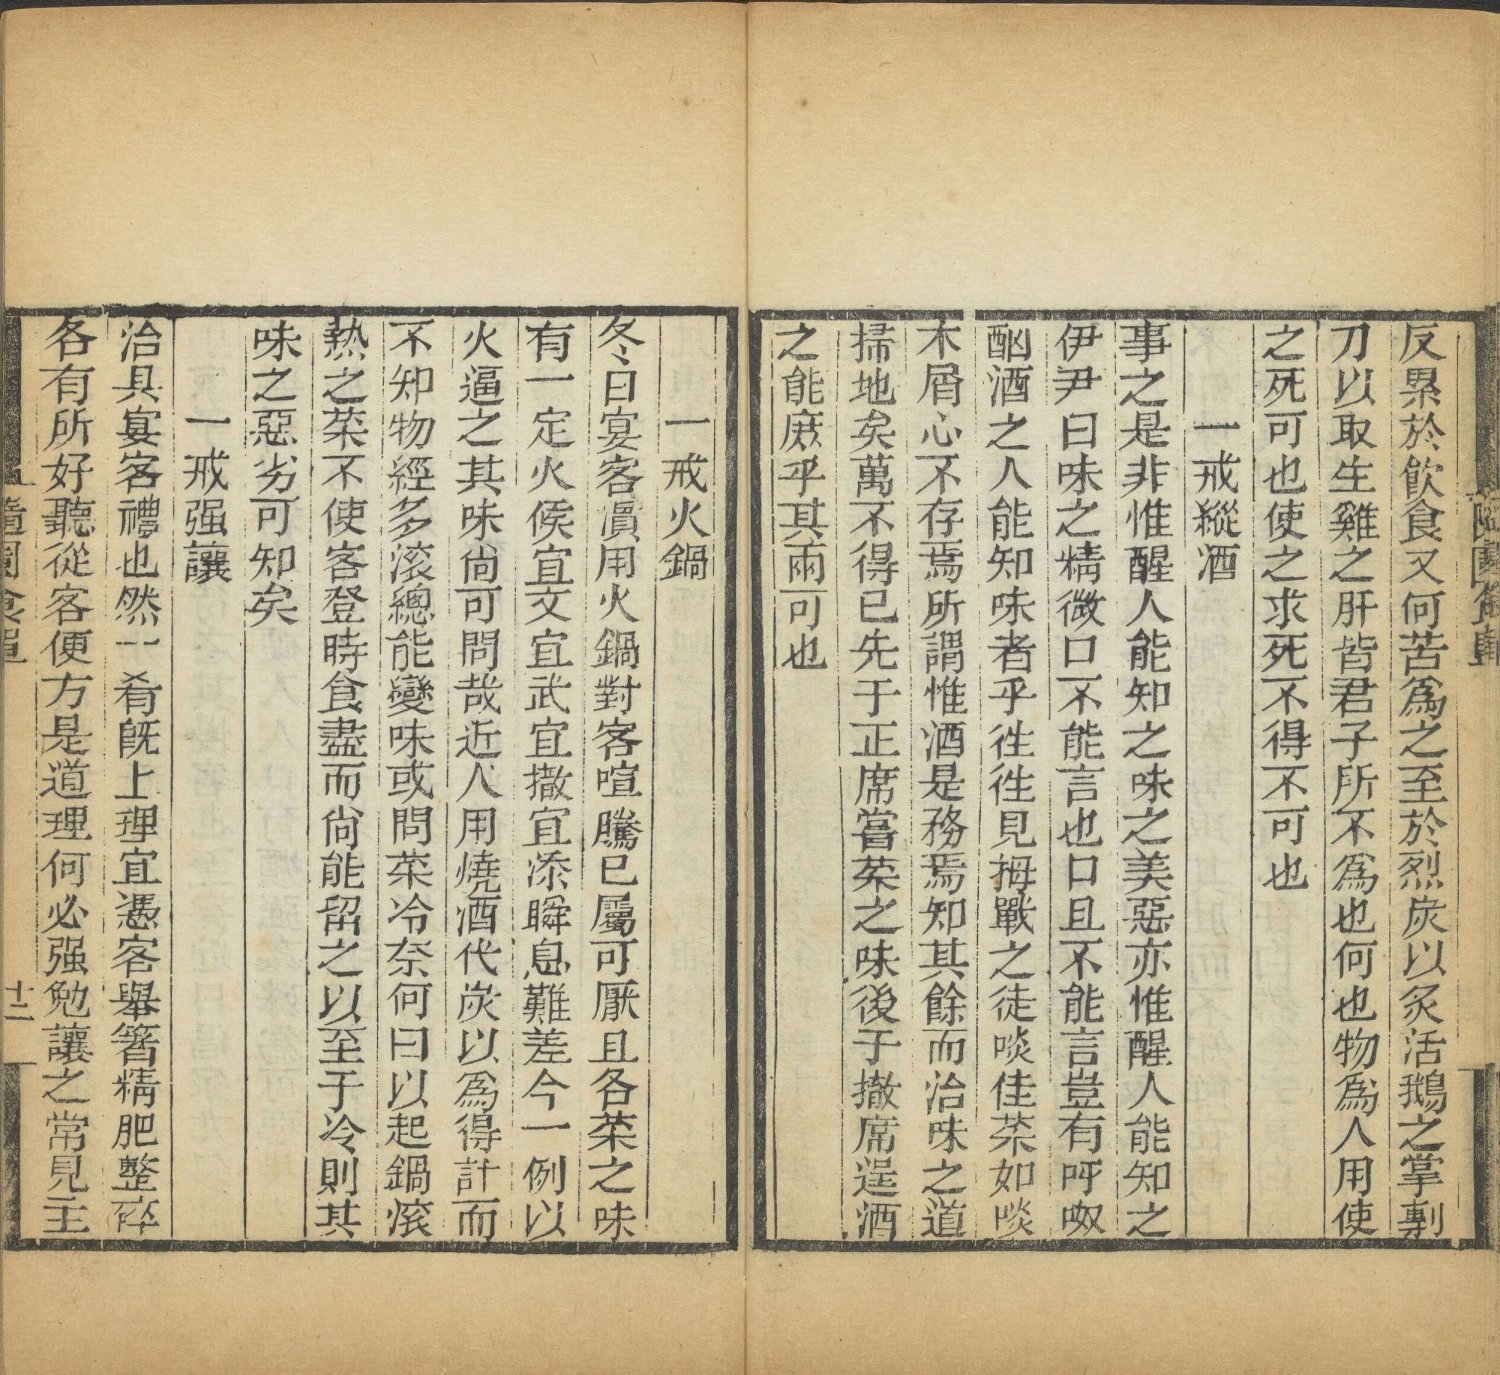 反累於飲食又何苦爲之至於烈炭以炙活鵝之掌剸
刀以取生雞之肝皆君子所不爲也何也物爲人用使
之死可也使之求死不得不可也
一戒縱酒
事之是非惟醒人能知之味之美惡亦惟醒人能知之
伊尹曰味之精微口不能言也口且不能言豈有呼呶
酗酒之人能知味者乎徃徃見拇戰之徒啖佳菜如啖
木屑心不存焉所謂惟酒是務焉知其餘而治味之道
掃地矣萬不得已先于正席嘗菜之味後于撤席逞酒
之能庶乎其兩可也
一戒火鍋
冬日宴客慣用火鍋對客喧騰已屬可厭且各菜之味
有一定火候宜文宜武宜撤宜添瞬息難差今一例以
火逼之其味尚可問哉近人用燒酒代炭以爲得計而
不知物經多滚總能變味或問菜冷奈何曰以起鍋滚
熱之菜不使客登時食盡而尚能留之以至于冷則其
味之惡劣可知矣
一戒强讓
治具宴客禮也然一肴旣上理宜憑客舉箸精肥整碎
各有所好聽從客便方是道理何必强勉讓之常見主
隨園食單
十二